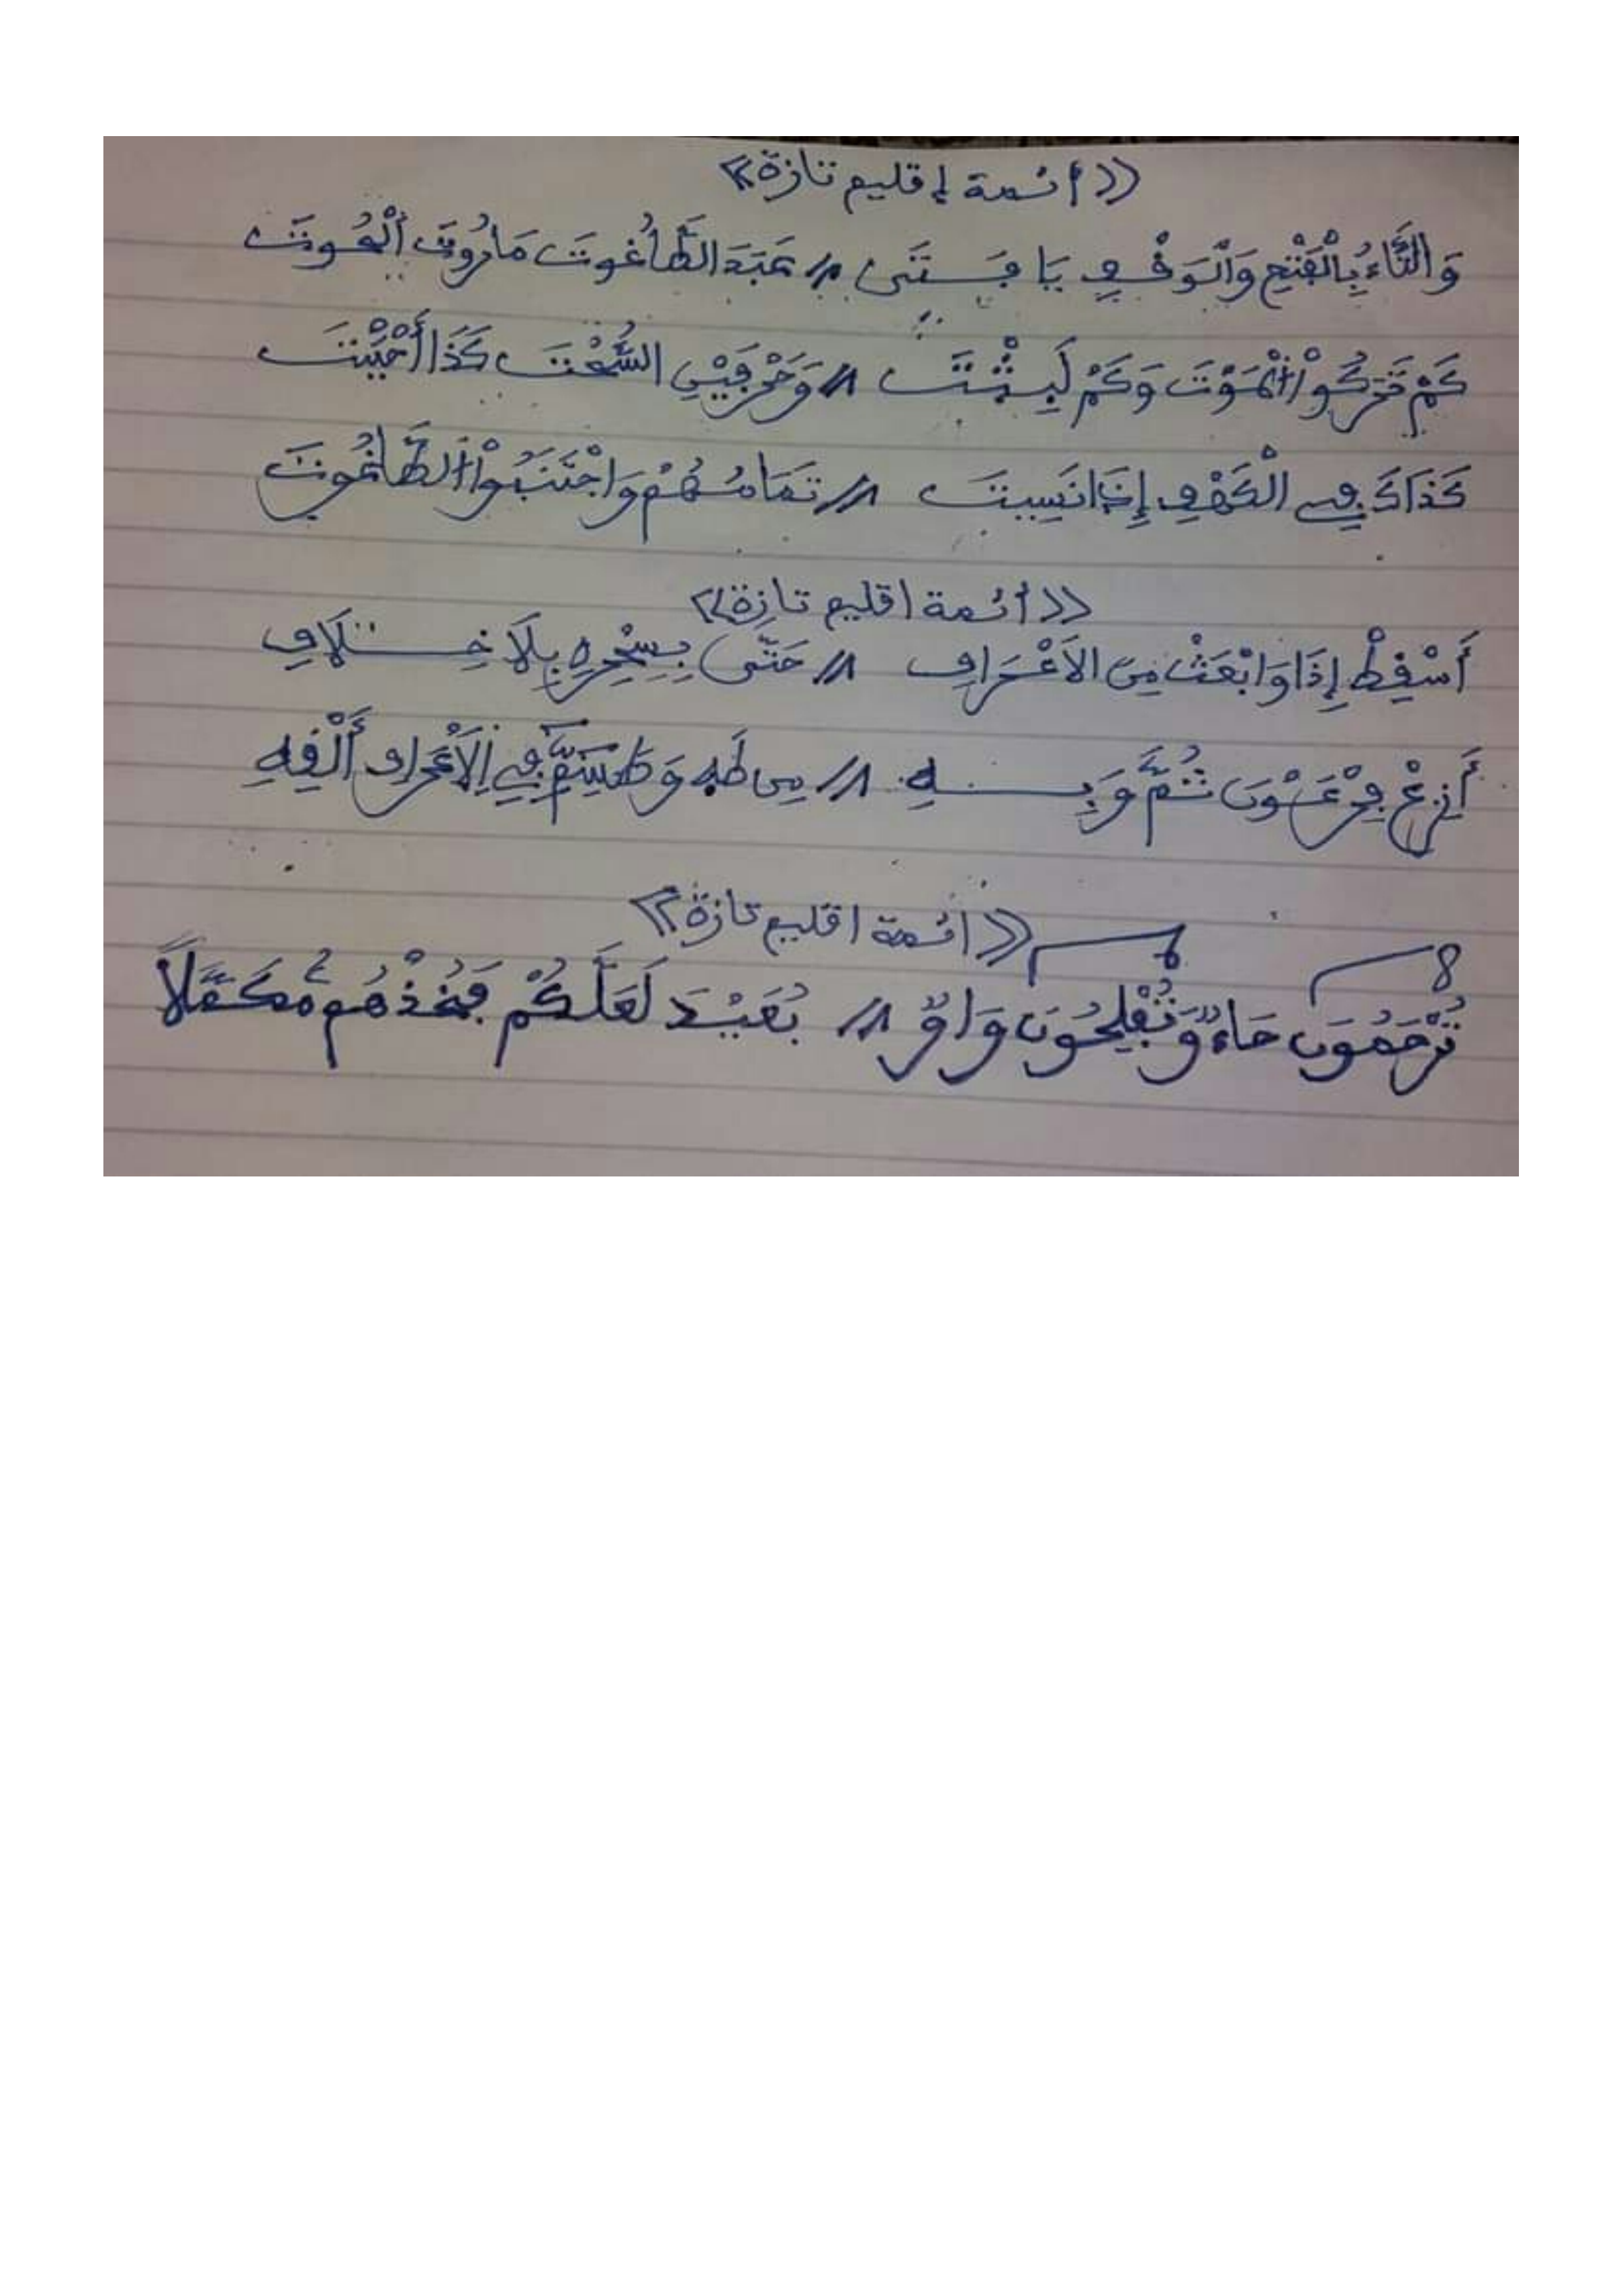 «أئمة إقليم تازة»
وَالتَّاءُ بِالْفَتْحِ وَالْوَقْفِ يَا فَتَى // عَبَدَ الطَّاغُوتَ مَارُوتَ الْمَوْتَ
كَمْ تَرَكُواْ الْمَوْتَ وَكَمْ لَبِثْتَ // وَحَرْفَيْنِ السُّحْتَ كَذَا أَحْيَيْتَ
كَذَاكَ فِي الْكَهْفِ إِذَا نَسِيتَ // تَمَامُهُمْ وَاجْتَنِبُواْ الطَّاغُوتَ
«أئمة اقليم تازة»
أَسْقِطْ إِذَا وَابْعَثْ مِنَ الاَعْرَافِ // حَتَّى بِسِحْرِهِ بِلَا خِلَافِ
أَرْبَعْ فِرْعَوْنَ ثُمَّ وَبِهِ // مِن طَهَ وَطَسِمِّ فِي الاَعْرَافِ أَلْفِهِ
«ائمة اقليم تازة»
تُرْحَمُونَ حَاءٌ وَتُفْلِحُونَ وَاوٌ // بُعَيْدَ لَعَلَّكُمْ فَخُذْهُم مُكَمَّلاً